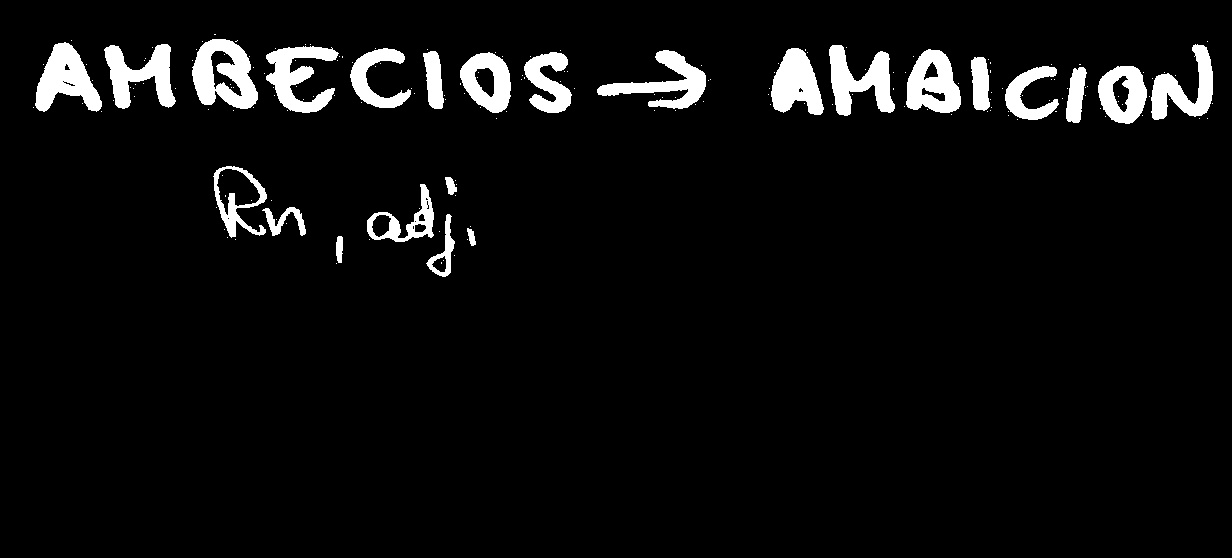 AMBECIOS → AMBICION
Rn, adj,